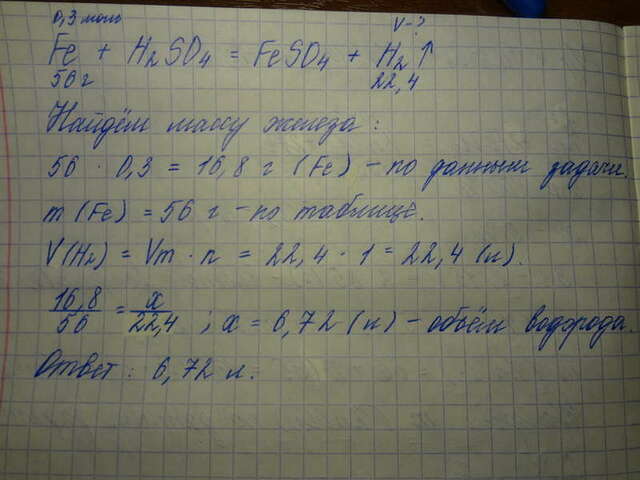 0,3 моль V-?
Fe + H2SO4 = FeSO4 + H2↑
56 г 22,4
Найдём массу железа:
56 · 0,3 = 16,8 г (Fe) – по данным задачи.
m (Fe) = 56 г – по таблице.
V(H2) = Vm · n = 22,4 · 1 = 22,4 (л).
16,8/56 = x/22,4 ; x = 6,72 (л) – объём водорода.
Ответ: 6,72 л.